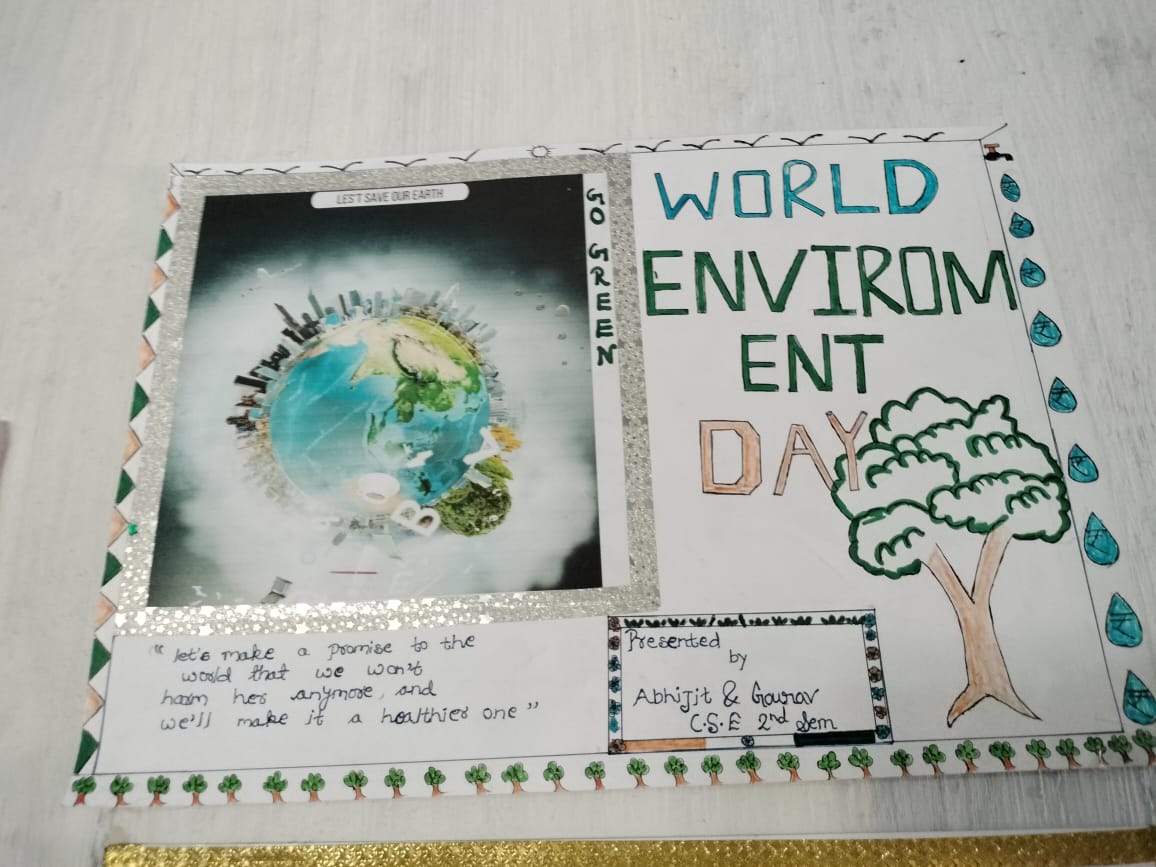 LES'T SAVE OUR EARTH
GO GREEN
WORLD
ENVIROM
ENT
DAY
"let's make a promise to the
world that we won't
harm her anymore, and
we'll make it a healthier one"
Presented
by
Abhijit & Gourav
C.S.E 2nd Sem